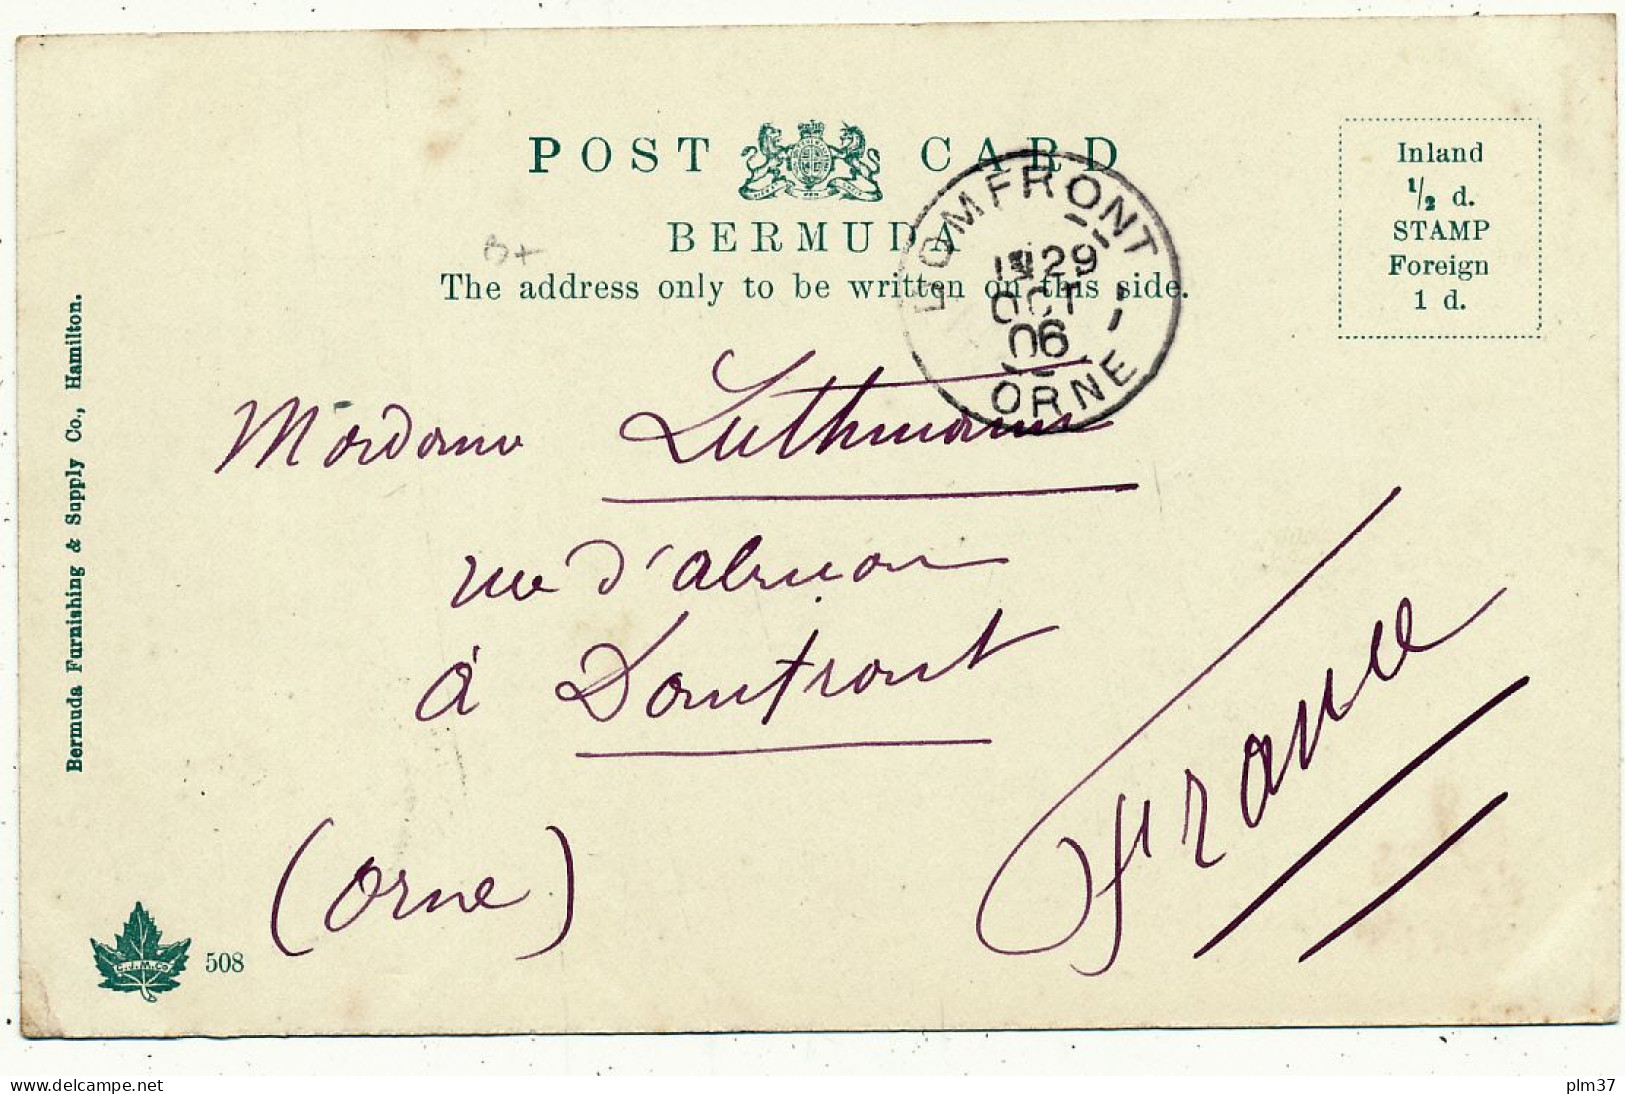 POST CARD
BERMUDA
The address only to be written on this side.
Inland
1/2 d.
STAMP
Foreign
1 d.
DOMFRONT
29
OCT
06
ORNE
B+
Madame Luthmann
rue d'
à Domfront
(Orne)
France
Bermuda Furnishing & Supply Co., Hamilton.
C.J.M.Co
508
www.delcampe.net
plm37